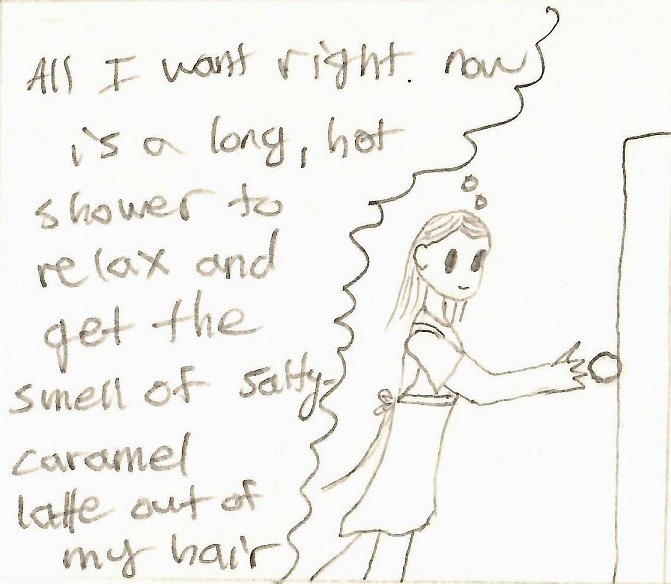 All I want right now
is a long, hot
shower to
relax and
get the
smell of salty-
caramel
latte out of
my hair